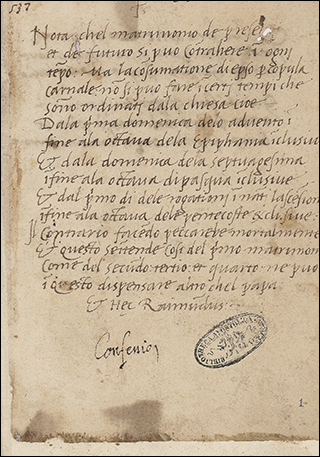 537
Nota chel matrimonio de presēte
et de futuro si puo cōtrahere ī ogni
tēpo. Ma la cōsumatione di epso p copula
carnale nō si puo fare ī certi tempi che
sono ordinati dala chiesa cioe
Dala pͥma domenica delo advento ī
fine ala octava dela Epiphania īclusive
Et dala domenica dela septuagesima
īfine ala octava di pasqua īclusive
Et dal pͥmo di dele rogationi īnāti lascēsiōe
īfine ala octava dele pentecoste īclusive:
Cōtrario facēdo peccarebe mortalmente
Et questo sēttende cosi del pͥmo matrimonio
Come del secūdo tertio et quarto ne puo
ī questo dispensare altro chel papa
Et Hec Raimūdus
1